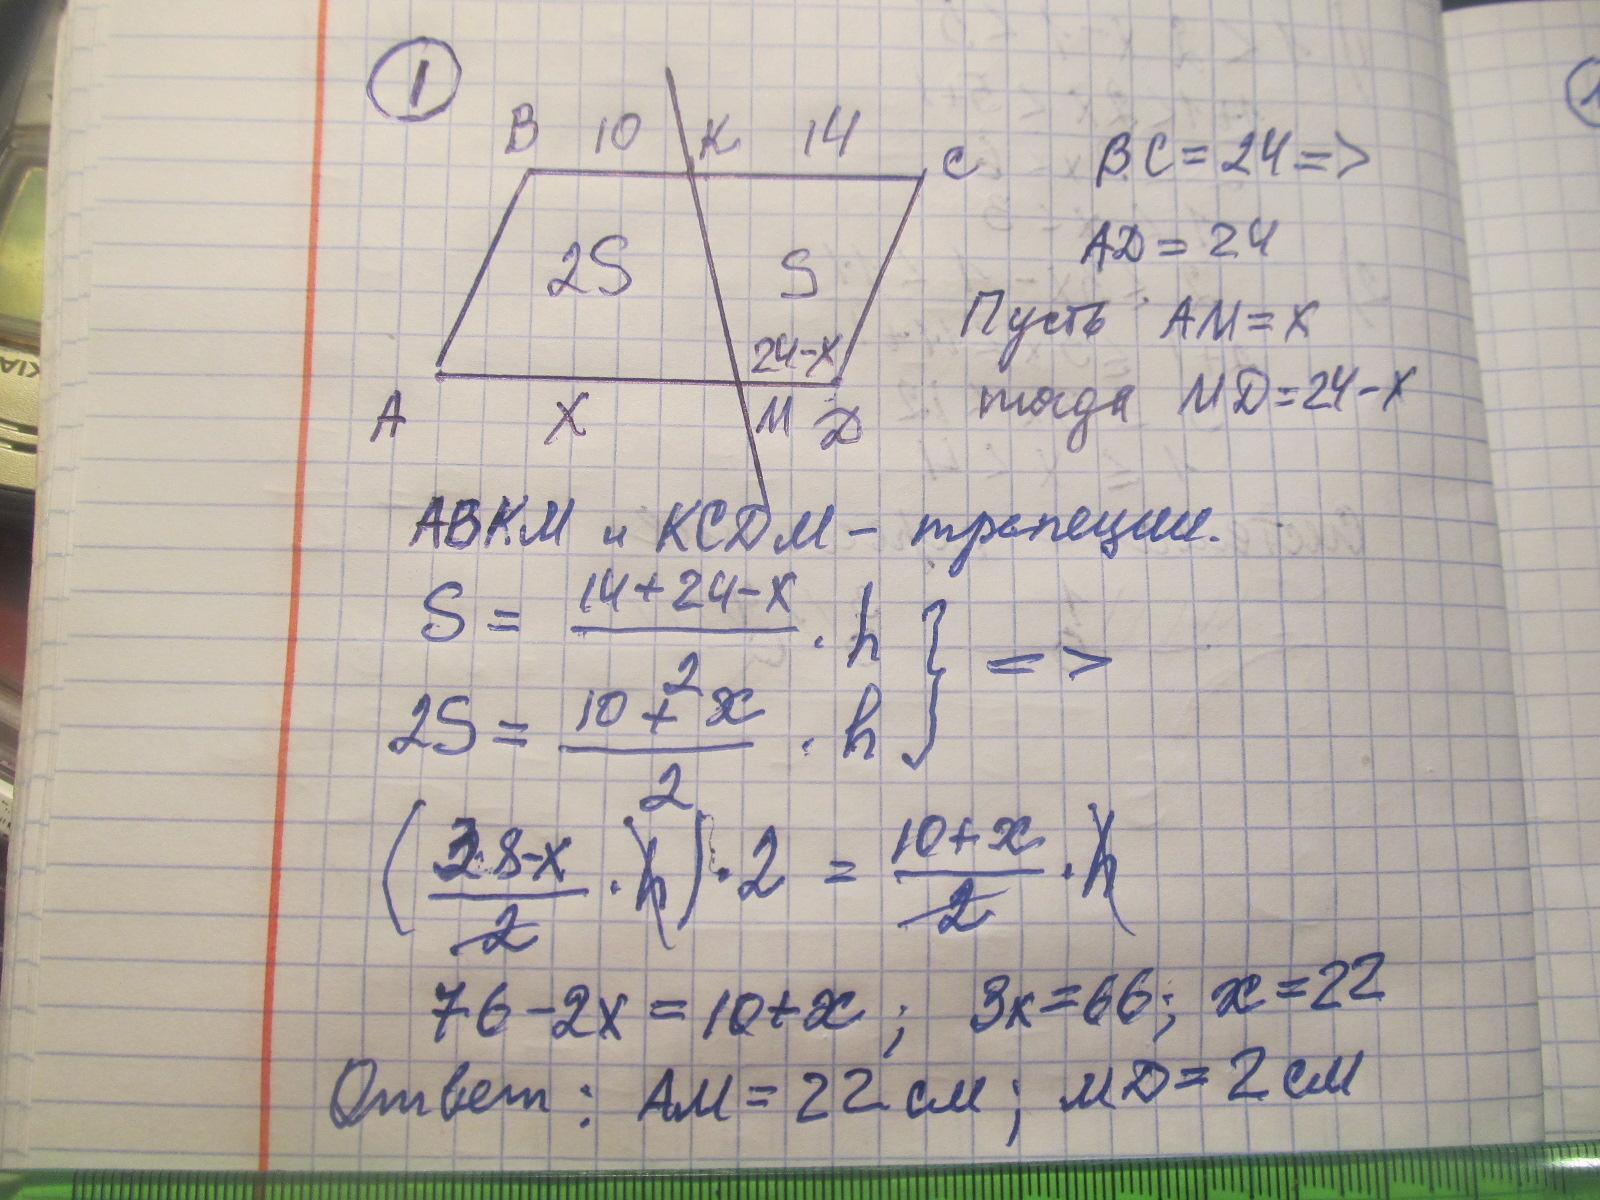 1
B 10 K 14 C
BC = 24 =>
AD = 24
2S S
Пусть AM = x
24-x
тогда MD = 24-x
A x M D
ABKM и KCDM – трапеции.
S = (14+24-x)/2 · h
2S = (10+x)/2 · h } =>
((38-x)/2 · h) · 2 = (10+x)/2 · h
76-2x = 10+x ; 3x = 66; x = 22
Ответ : AM = 22 см ; MD = 2 см
KIA